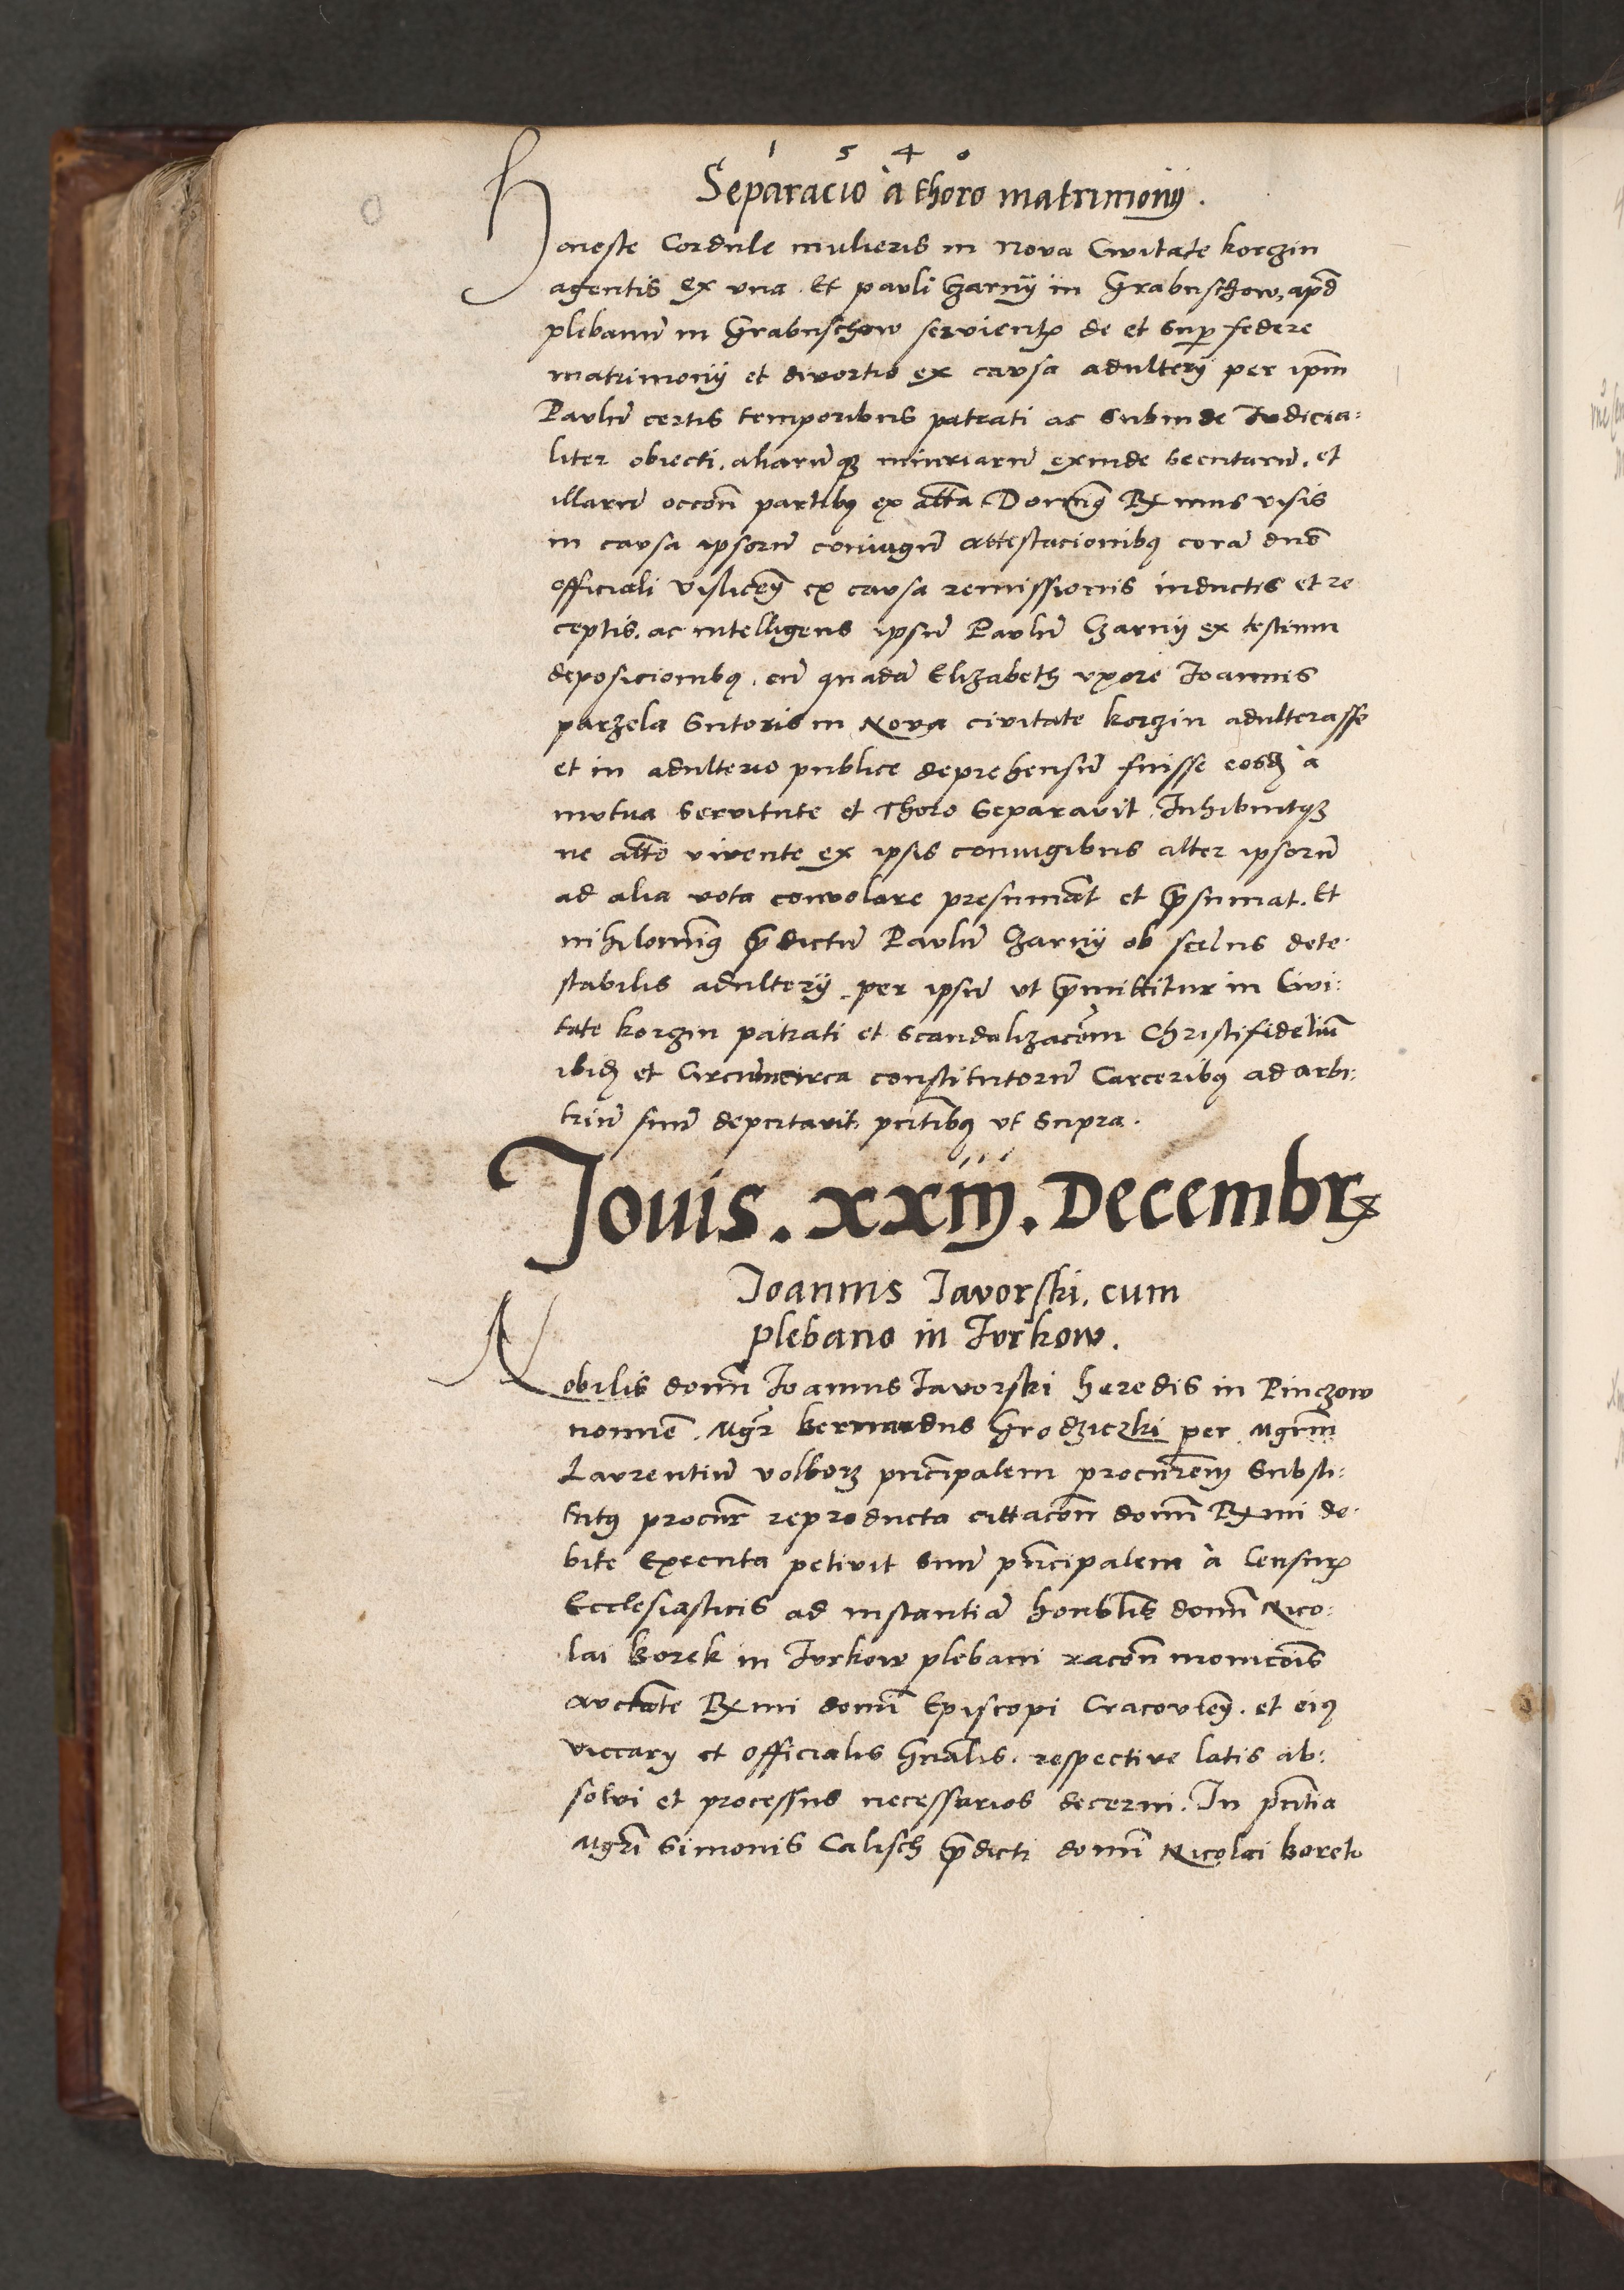 1 5 4 0
Separacio a thoro matrimonij.
Honeste Cordule mulieris in Nova Civitate korczin
agentis ex una. Et pauli Czarnij in Grabuschow, apud
plebanū in Grabuschow servient de et sup federe
matrimonij et divortio ex causa adulterij per ipm
Paulū certis temporibus patrati ac subinde Iudicia:
liter obiecti. aliarūq iniuriarū exinde secutarū. et
illarū occōn partibq ex Domq Rmus visis
in causa ipsorū coniugū attestacionibq corā dno
officiali Vislicen ex causa remissionis inductis et re
ceptis. ac intelligens ipsū Paulū Czarnij ex testium
deposicionibq. cū quadā Elizabeth uxore Ioannis
parzela Sutoris in Nova civitate korczin adulterasse
et in adulterio publice deprehensū fuisse eosd a
mutua servitute et Thoro Separavit. Inhibuitqз
ne altō vivente ex ipsis coniugibus alter ipsorū
ad alia vota convolare presumāt et psumat. Et
nihilominq pdictū Paulū Czarnij ob scelus dete:
stabilis adulterij per ipsū ut pmittitur in Civi:
tate korczin patrati et scandalizacōem Christifideliū
ibid et Circumcirca constitutorū Carceribq ad arbi:
triū suū deputavit. pntibq ut supra.
Jovis. xxiij. Decembr
Ioannis Iavorski. cum
plebano in Jurkow.
Nobilis domī Ioannis Iavorski heredis in Pinczow
nomine. Mgr Bernardus Grodziczki per Mgrm
Laurentiū Volborz principalem procurem substi:
tutq procur reproducta cittacōn domī Rmi de:
bite Executa petivit suū principalem a Censur
Ecclesiasticis ad instantiā honblis domī Nico:
lai Borek in Jurkow plebani racōn monicōis
auctate Rmi domī Episcopi Cracovien. et eiq
viccarij et officialis Gnalis. respective latis ab:
solvi et processus necessarios decerni. In pntia
Mgri Simonis Calisch pdicti domī Nicolai Borek